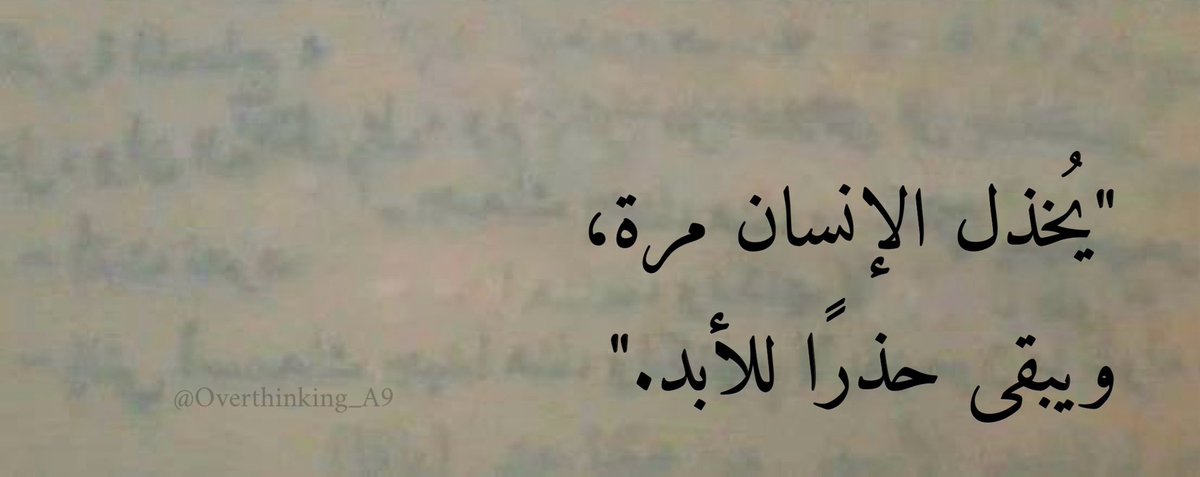 "يُخذل الإنسان مرة،
ويبقى حذرًا للأبد."
@Overthinking_A9